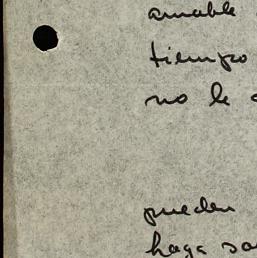 amable
tiempo
no le
pueden
haga